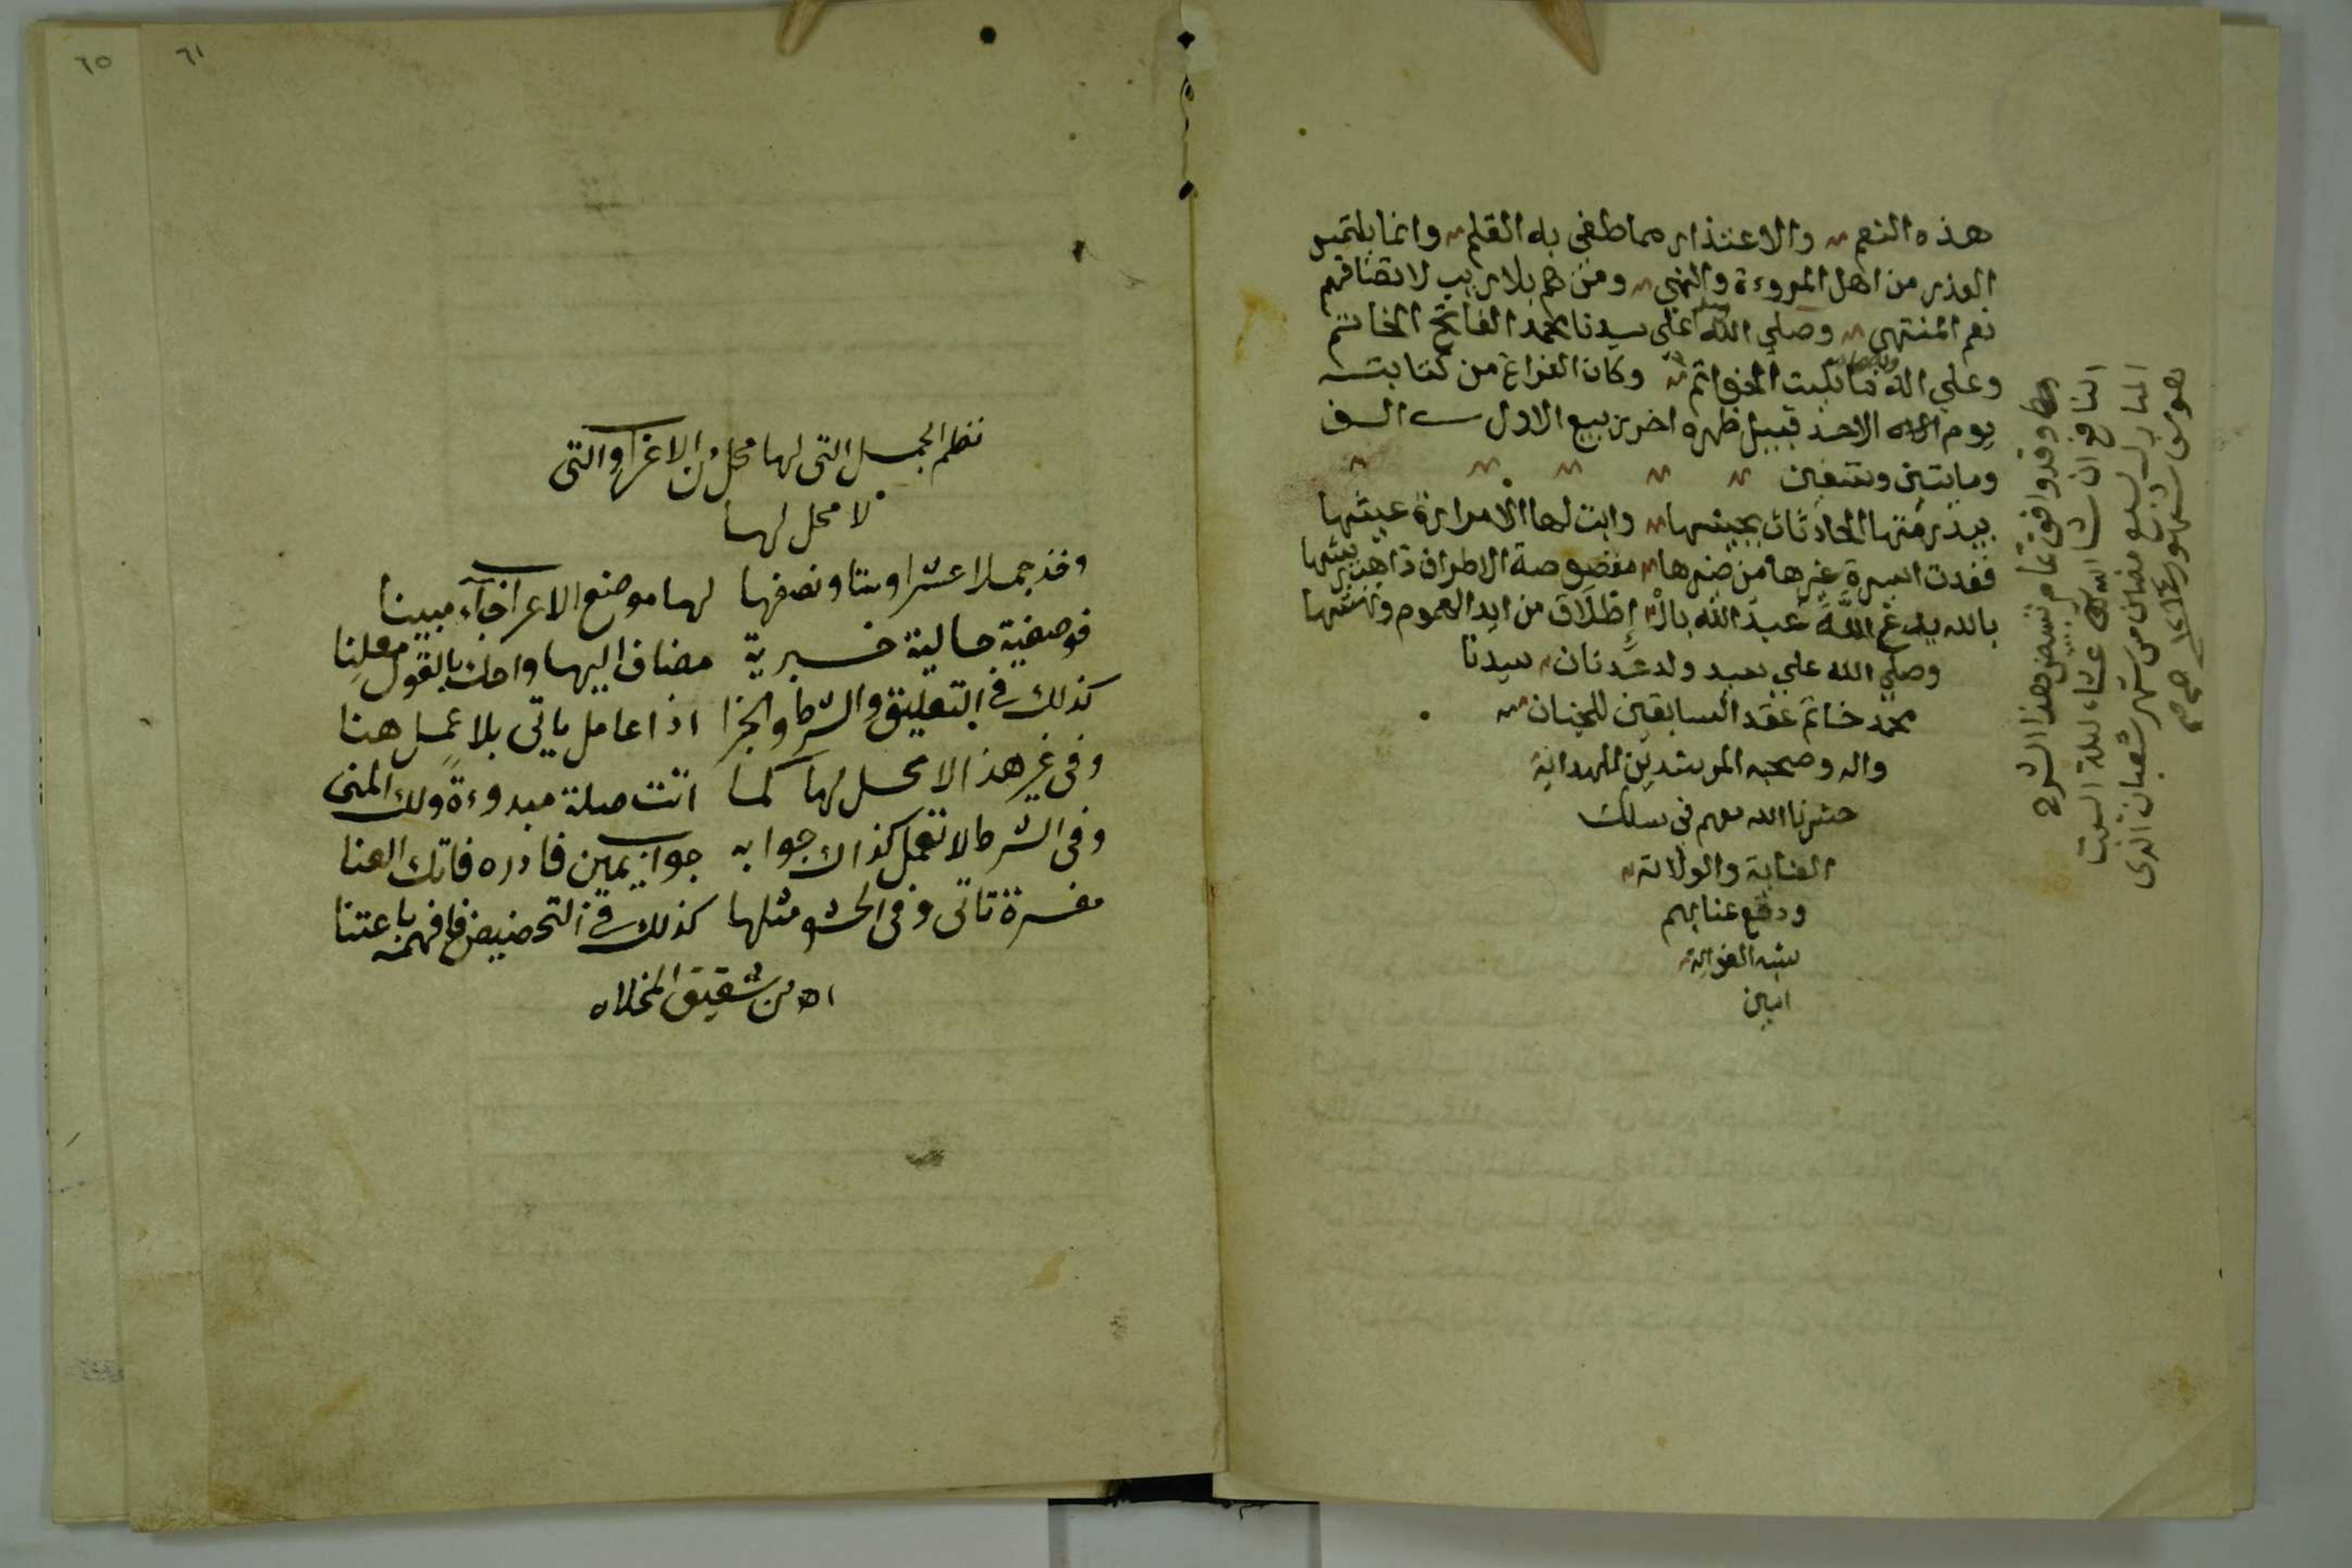 هذه النعم والاعتذار مما طغى به القلم وانما يلتمس
العذر من اهل المروءة والنهى ومن هم بلا ريب لاتصافهم
نعم المنتهى وصلى الله وسلم على سيدنا محمد الفاتح الخاتم
وعلى اله ما تليت الخواتم وكان الفراغ من كتابته
يوم الاحد قبيل ظهره اخر ربيع الاول سـ الف
ومايتين وتسعين
بيد رمتها الحادثات وابت لها الا مرارة عيشها
فغدت اسيرة غيرها من ضرها مقصوصة الاطراف ذاهب ريشها
بالله عبد الله بال إطلاق من ايد الهموم ونهشها
وصلى الله على سيد ولد عدنان سيدنا
محمد خاتم عقد السابقين للجنان
واله وصحبه المرشدين للهداية
حشرنا الله معهم في سلك
العناية والولاية
ودفع عنا بهم
شبه الغواية
امين
وقد وافق تمام تبييض هذا الشرح
النافع ان شاء الله عشاء ليلة السبت
المبارك لسبع مضان من شهر شعبان الذى
هو من شهور
٦١
٦٥
نظم الجمل التى لها محل من الاعراب والتى
لا محل لها
وخذ جملا عشرا وستا ونصفها لها موضع الاعراب جآء مبينا
فوصفية حالية خبرية مضاف اليها واحك بالقول معلنا
كذلك فى التعليق والشرط والجزا اذا عامل ياتى بلا عمل هنا
وفى غير هذا لا محل لها كما اتت صلة مبدوءة ولك المنى
وفى الشرط لا تعمل كذاك جوابه جواب يمين فادره فاتك العنا
مفسرة تاتى وفى الحشو مثلها كذلك فى التحضيض فافهمه باعتنا
اه من شفيق المخلاه